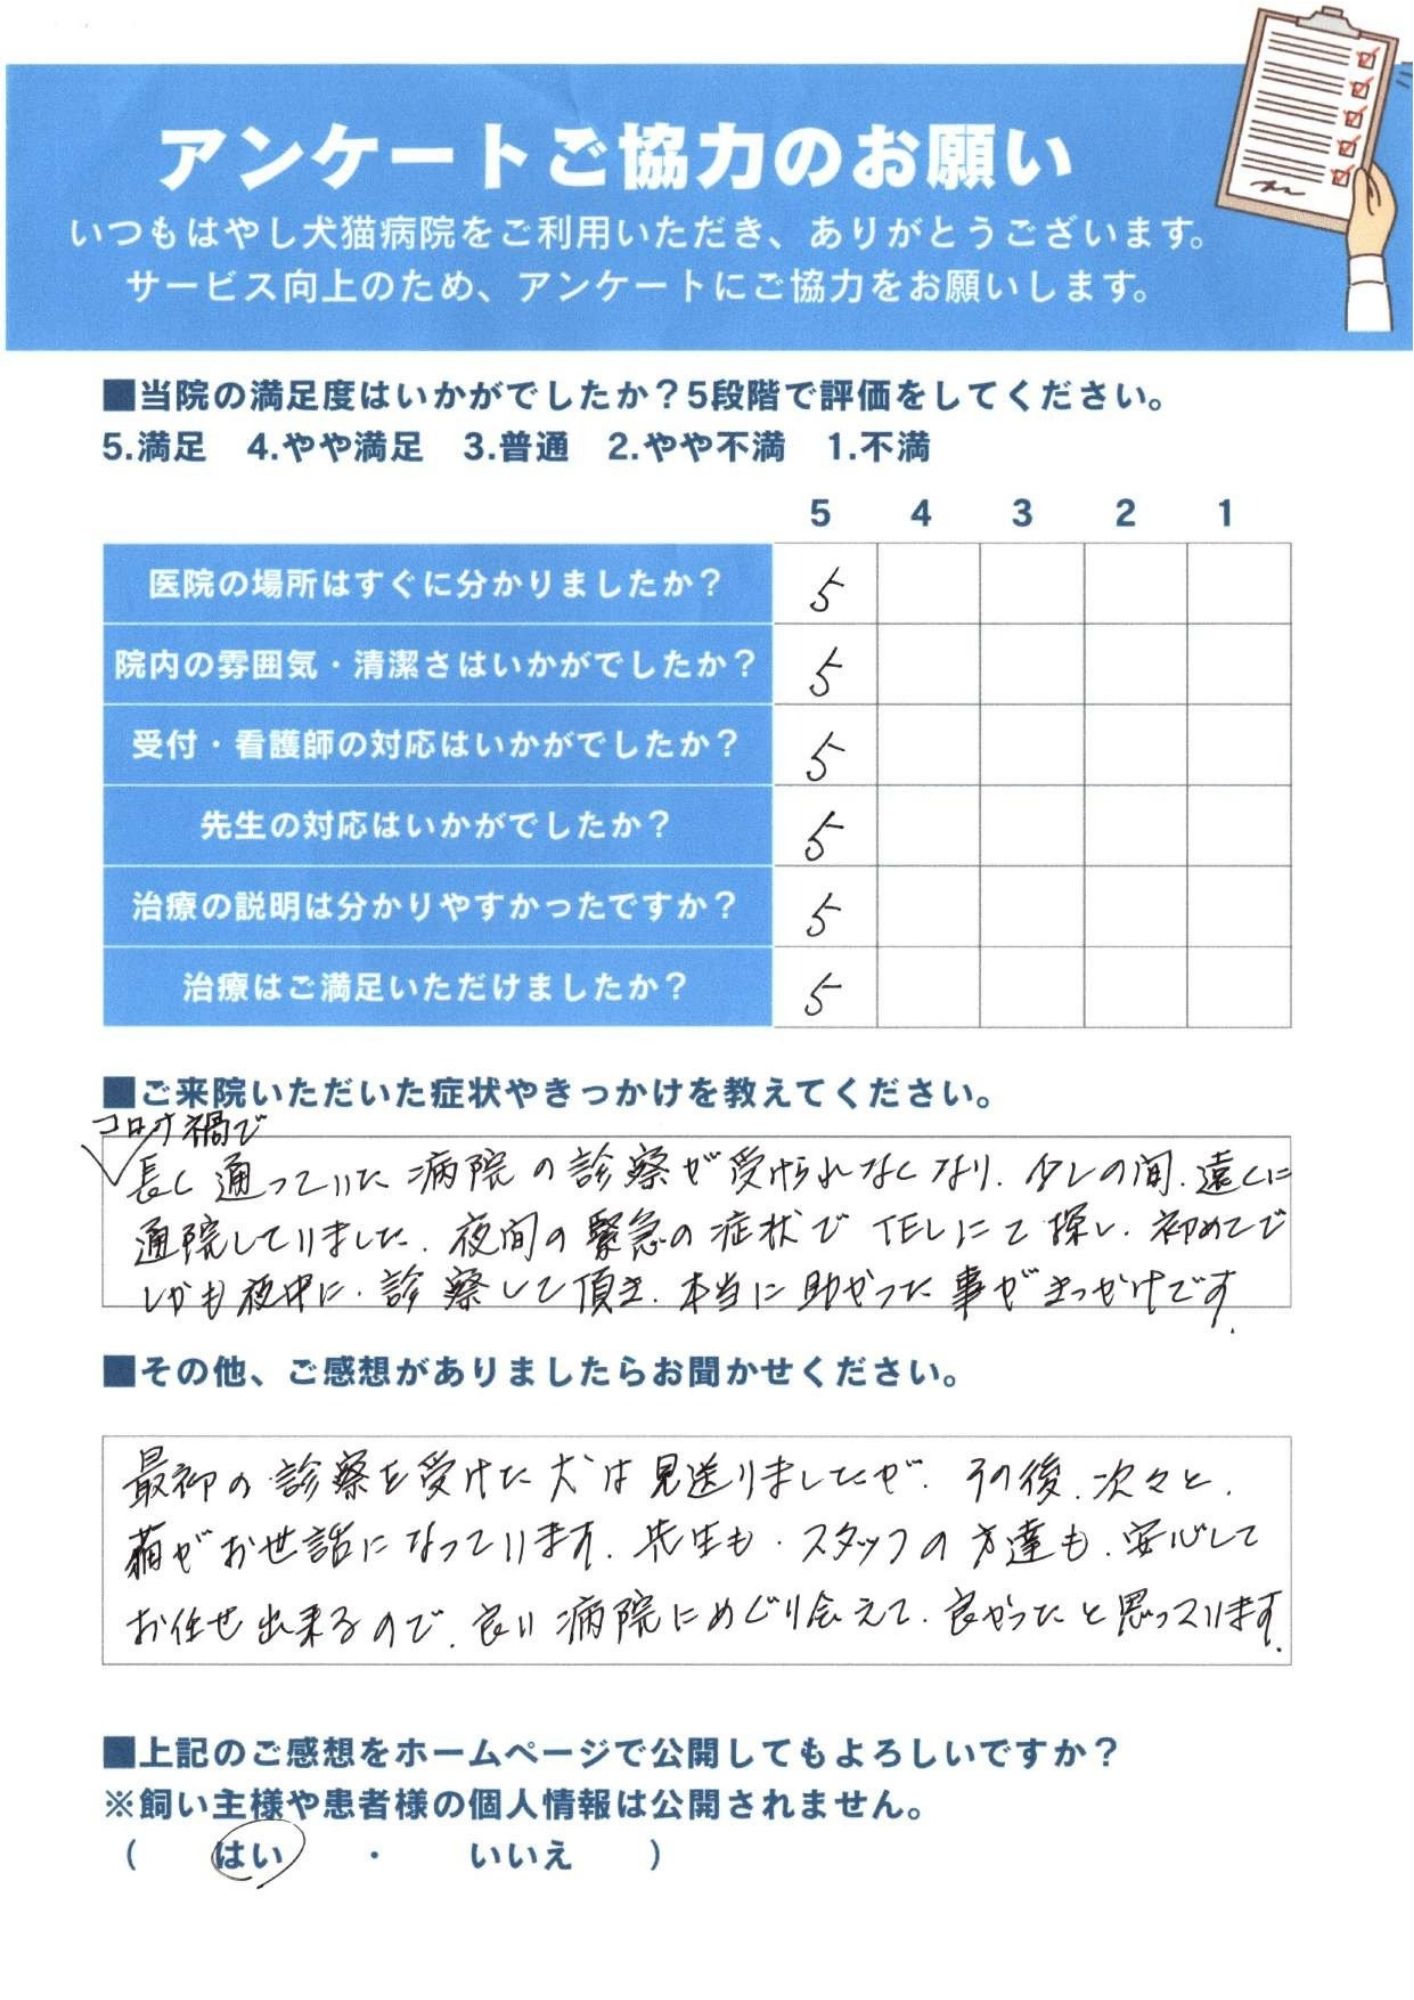 アンケートご協力のお願い
いつもはやし犬猫病院をご利用いただき、ありがとうございます。
サービス向上のため、アンケートにご協力をお願いします。
■当院の満足度はいかがでしたか？5段階で評価をしてください。
5.満足　4.やや満足　3.普通　2.やや不満　1.不満
5 4 3 2 1
医院の場所はすぐに分かりましたか？ 5
院内の雰囲気・清潔さはいかがでしたか？ 5
受付・看護師の対応はいかがでしたか？ 5
先生の対応はいかがでしたか？ 5
治療の説明は分かりやすかったですか？ 5
治療はご満足いただけましたか？ 5
■ご来院いただいた症状やきっかけを教えてください。
コロナ禍で
長く通っていた病院の診察が受けられなくなり、少しの間、遠くに
通院していました。夜間の緊急の症状でTELにて探し、初めてで
しかも夜中に、診察して頂き、本当に助かった事がきっかけです。
■その他、ご感想がありましたらお聞かせください。
最初の診察を受けた犬は見送りましたが、その後、次々と、
猫がお世話になっています。先生も、スタッフの方達も、安心して
お任せ出来るので、良い病院にめぐり会えて、良かったと思っています。
■上記のご感想をホームページで公開してもよろしいですか？
※飼い主様や患者様の個人情報は公開されません。
（　はい　・　いいえ　）